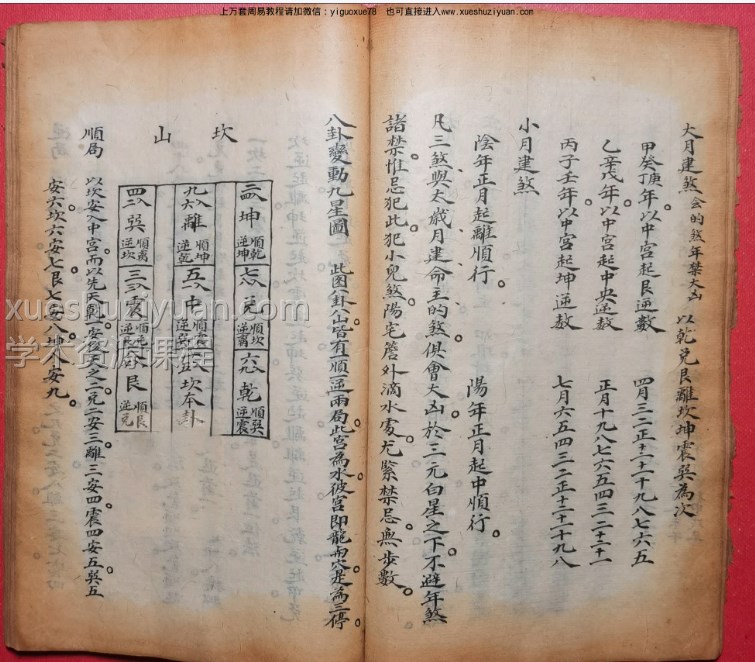 上万套周易教程请加微信：yiguoxue78 也可直接进入www.xueshuziyuan.com
大月建煞 会的煞年禁大凶 以乾兑艮離坎坤震巽為次
甲癸庚年以中宮起艮逆數 四月三二正十二十一十九八七六五
乙辛戊年以中宮起中央逆數 正月十九八七六五四三二十二十一
丙子壬年以中宮起坤逆數 七月六五四三二正十二十一十九八
小月建煞
陰年正月起離順行 陽年正月起中順行
凡三煞與太歲月建命主的煞俱會大凶於三元白星之下不避年煞
諸禁惟忌犯此犯小兒煞陽宅簷外滴水處尤緊禁忌無步數
八卦變動九星圖 此圖八卦八山皆有順逆兩局此宮為水彼宮即龍而穴是為三停
坎山
坤 順乾 逆坤
兑 順坎 逆離
乾 順巽 逆震
離 順坤 逆乾
中
坎 本卦
巽 順离 逆坎
震
艮 順艮 逆兑
順局 以坎安入中宮而以先天
安後天之二兑二安三離三安四震四安五巽五
安六坎六安七艮七安八坤八安九
xueshuziyuan.com
学术资源课程